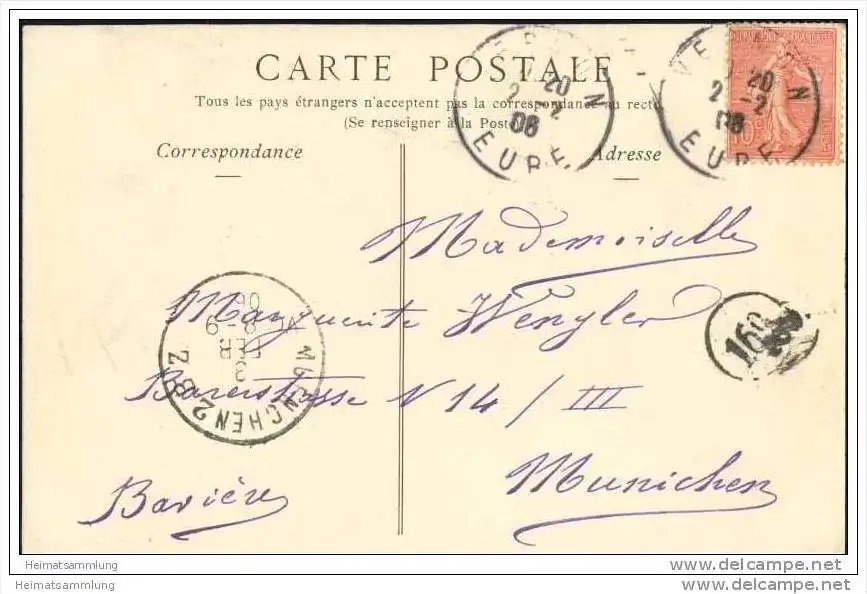 CARTE POSTALE
Tous les pays étrangers n'acceptent pas la correspondance au recto
(Se renseigner à la Poste)
Correspondance
Adresse
20
2 -2
06
EURE
VERNON
20
2 -2
06
EURE
Mademoiselle
Marguerite Wengler
Barerstrasse N 14 / III
Munichen
Bavière
MUENCHEN 2 B.Z.
3
FEB
8-9
06
168
Heimatsammlung
Heimatsammlung
www.delcampe.net
www.delcampe.net